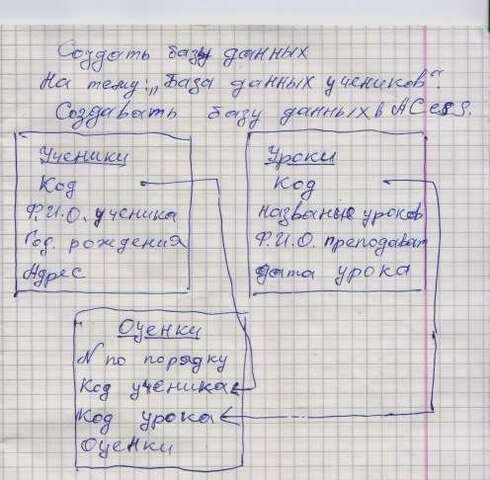 Создать базу данных
На тему: „База данных учеников“.
Создавать базу данных в ACess.
Ученики
Код
Ф.И.О. ученика
Год. рождения
Адрес
Уроки
Код
Названые уроков
Ф.И.О. преподават
Дата урока
Оценки
N по порядку
Код ученика
Код урока
Оценки